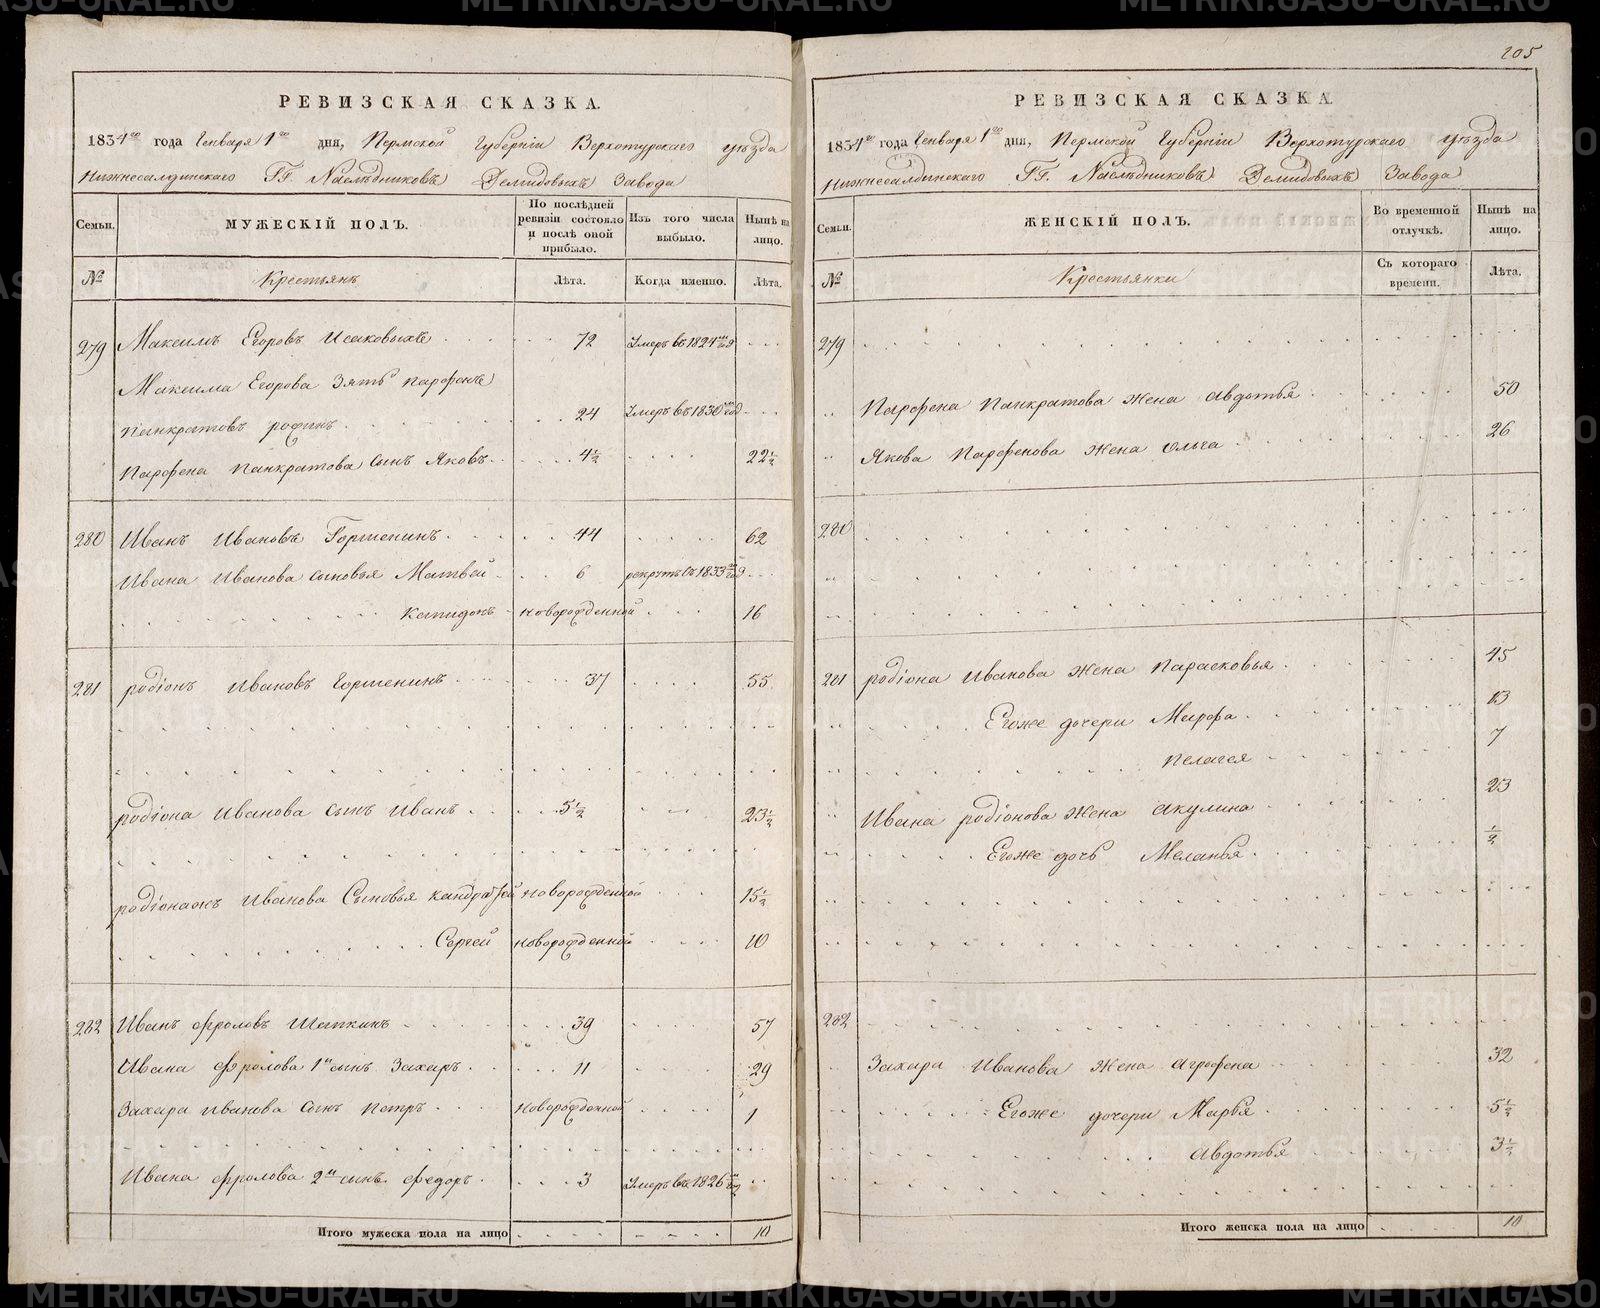 205
РЕВИЗСКАЯ СКАЗКА.
1834го года Генваря 1го дня, Пермской Губернiи Верхотурскаго уѣзда
Нижнесалдинскаго ГГ. Наслѣдниковъ Демидовыхъ Завода
Семьи. МУЖЕСКІЙ ПОЛЪ. По послѣдней ревизіи состояло и послѣ оной прибыло. Изъ того числа выбыло. Нынѣ на лицо.
№ Крестьянъ Лѣта. Когда именно. Лѣта.
279 Максимъ Егоровъ Исаковыхъ 72 Умеръ въ 1824м год
Максима Егорова Зять Парфенъ
Панкратовъ 24 Умеръ въ 1830м год
Парфена Панкратова сынъ Яковъ 4½ 22½
280 Иванъ Ивановъ Горшенинъ 44 62
Ивана Иванова сыновья Матвей 6 рекрутъ въ 1833м год
Капидонъ новорожденной 16
281 Родіонъ Ивановъ Горшенинъ 37 55
Родіона Иванова сынъ Иванъ 5½ 23½
Иванова Сыновья новорожденной 15½
Сергей новорожденной 10
282 Иванъ Фроловъ Шапкинъ 39 57
Ивана Фролова 1й сынъ Захаръ 11 29
Захара Иванова сынъ Петръ новорожденной 1
Ивана Фролова 2й сынъ Федоръ 3 Умеръ въ 1826м год
Итого мужеска пола на лицо 10
РЕВИЗСКАЯ СКАЗКА.
1834го года Генваря 1го дня, Пермской Губернiи Верхотурскаго уѣзда
Нижнесалдинскаго ГГ. Наслѣдниковъ Демидовыхъ Завода
Семьи. ЖЕНСКІЙ ПОЛЪ. Во временной отлучкѣ. Нынѣ на лицо.
№ Крестьянки Съ котораго времени. Лѣта.
279
Парфена Панкратова жена Авдотья 50
Якова Парфенова жена Ольга 26
280
281 Родіона Иванова жена Парасковья 45
Егоже дочери Марфа 13
Пелагея 7
Ивана Родіонова жена Акулина 23
Егоже дочь Меланья ½
282
Захара Иванова жена Агрофена 32
Егоже дочери Марья 5½
Авдотья 3½
Итого женска пола на лицо 10
METRIKI.GASO-URAL.RU